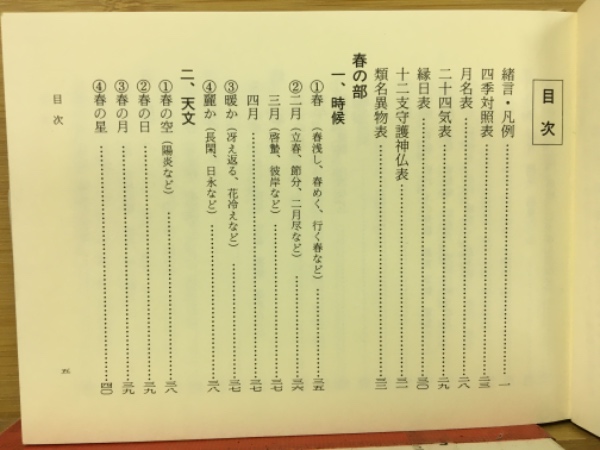 目次
緒言・凡例…………一
四季対照表…………二三
月名表…………二八
二十四気表…………二九
縁日表…………三〇
十二支守護神仏表…………三二
類名異物表…………三三
春の部
一、時候
①春（春浅し、春めく、行く春など）…………三五
②二月（立春、節分、二月尽など）…………三六
三月（啓蟄、彼岸など）…………三七
四月…………三七
③暖か（冴え返る、花冷えなど）…………三七
④麗か（長閑、日永など）…………三八
二、天文
①春の空（陽炎など）…………三八
②春の日…………三九
③春の月…………三九
④春の星…………四〇
目次
五